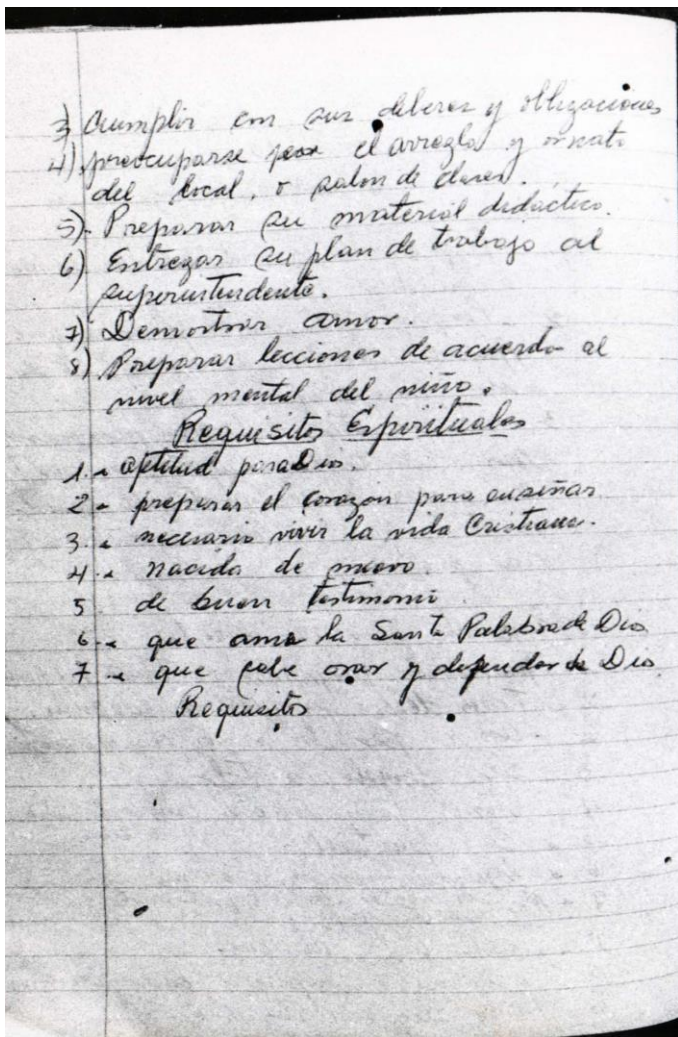 3) Cumplir con sus deberes y obligaciones
4) preocuparse por el arreglo y ornato
del local, o salon de clases.
5)- Preparar su material didactico.
6) Entregar su plan de trabajo al
superintendente.
7) Demostrar amor.
8) Preparar lecciones de acuerdo al
nivel mental del niño.
Requisitos Espirituales
1.- aptitud para Dios.
2 - preparar el corazon para enseñar
3 - necesario vivir la vida Cristiana.
4 - nacido de nuevo.
5 de buen testimonio
6 - que ama la Santa Palabra de Dios
7 - que sabe orar y depender de Dios
Requisitos